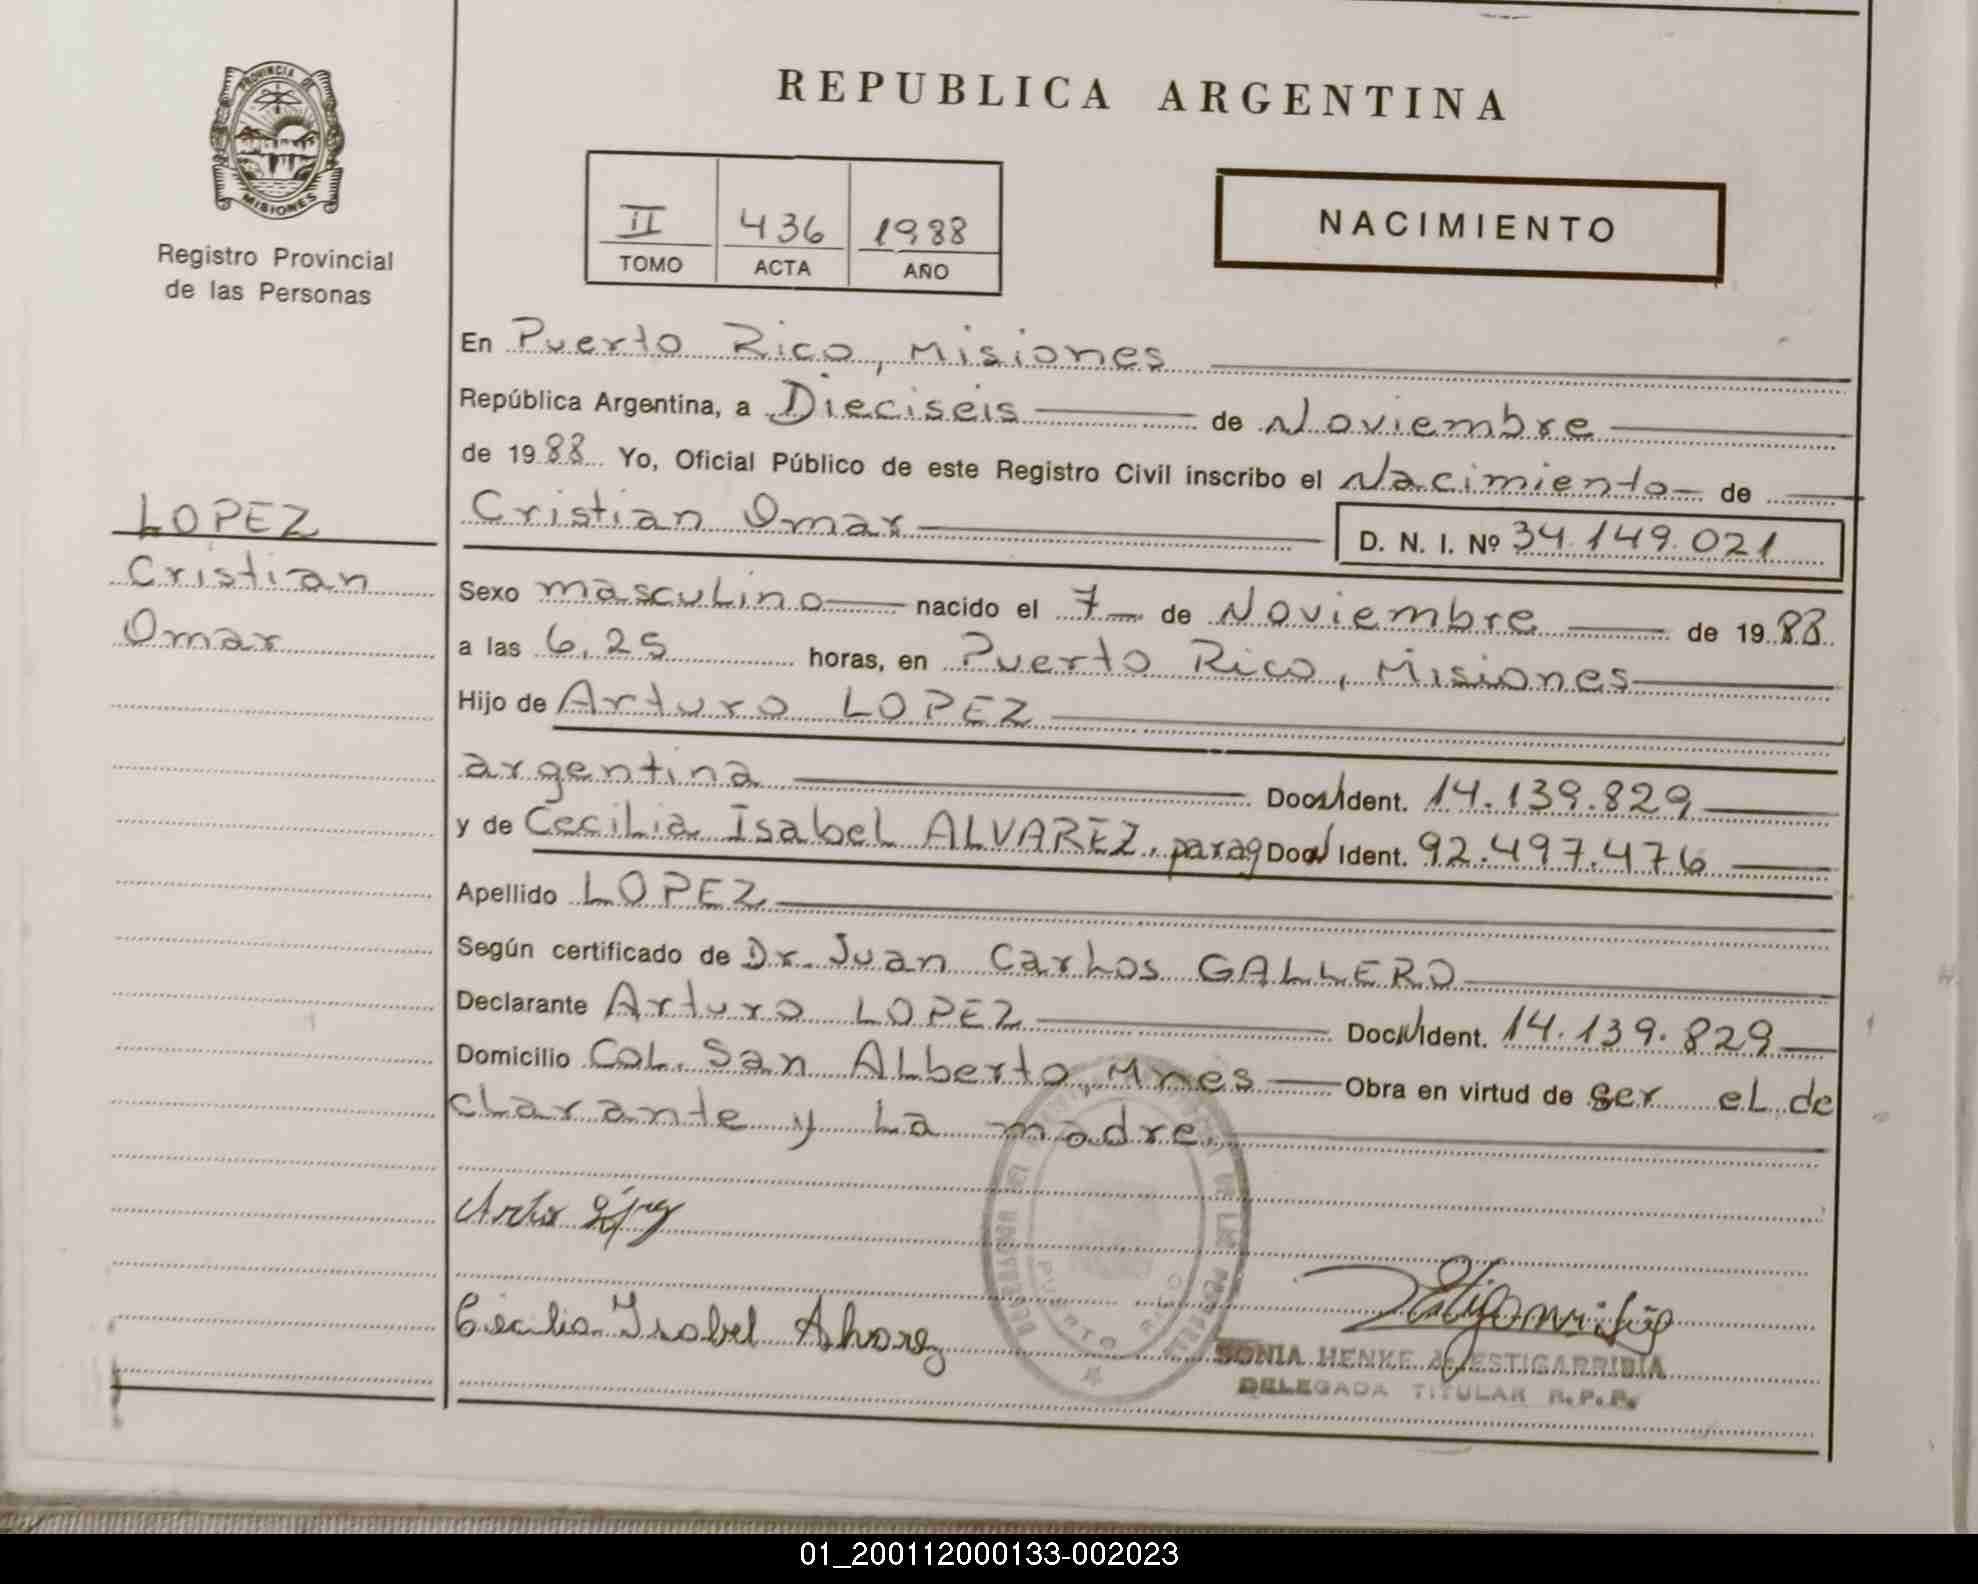 REPUBLICA ARGENTINA
PROVINCIA DE
MISIONES
Registro Provincial
de las Personas
II 436 1988
TOMO ACTA AÑO
NACIMIENTO
En Puerto Rico, Misiones
República Argentina, a Dieciseis de Noviembre
de 1988 Yo, Oficial Público de este Registro Civil inscribo el Nacimiento de
Cristian Omar
D. N. I. Nº 34.149.021
LOPEZ
Cristian
Omar
Sexo masculino nacido el 7 de Noviembre de 1988
a las 6,25 horas, en Puerto Rico, Misiones
Hijo de Arturo LOPEZ
argentina Doc. Ident. 14.139.829
y de Cecilia Isabel ALVAREZ, parag Doc. Ident. 92.497.476
Apellido LOPEZ
Según certificado de Dr. Juan Carlos GALLERO
Declarante Arturo LOPEZ Doc. Ident. 14.139.829
Domicilio Col. San Alberto, Mnes Obra en virtud de ser el de
clarante y la madre.
Cecilia Isabel Alvarez
PUERTO RICO
SONIA HENKE de ESTIGARRIBIA
DELEGADA TITULAR R.P.P.
01_200112000133-002023